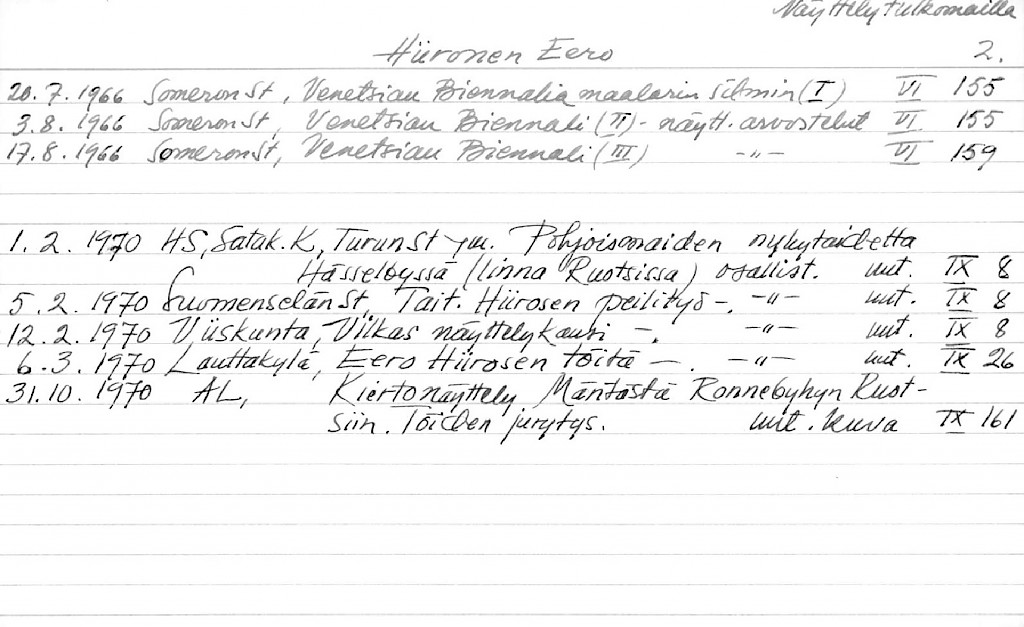 Näyttely ulkomailla
Hiironen Eero 2.
20.7.1966 SomeronSt, Venetsian Biennalia maalarin silmin (I) VI 155
3.8.1966 SomeronSt, Venetsian Biennali (II) - näytt. arvostelut VI 155
17.8.1966 SomeronSt, Venetsian Biennali (III) -"- VI 159
1.2.1970 HS, Satak.K, TurunSt ym. Pohjoismaiden nykytaidetta
Hässelbyssä (linna Ruotsissa) osallist. mit. IX 8
5.2.1970 SuomenselänSt, Tait. Hiirosen peilityö - -"- mit. IX 8
12.2.1970 Viiskunta, Vilkas näyttelykausi - -"- mit. IX 8
6.3.1970 Lauttakylä, Eero Hiirosen töitä - -"- mit. IX 26
31.10.1970 AL, Kiertonäyttely Mäntästä Ronnebyhyn Ruot-
siin. Töiden jurytys. mit. kuva IX 161